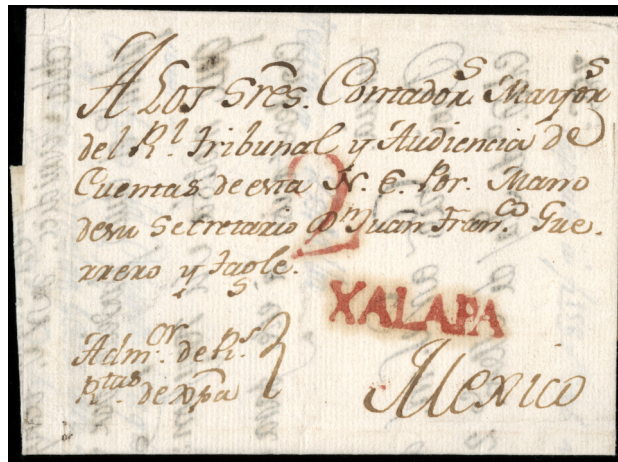 A Los Sres. Contadors. Mayors
del Rl. Tribunal y Audiencia de
Cuentas de esta N. E. Por. Mano
de su Secretario Dn Juan Franco. Gue.
rrero y Tagle.
2
XALAPA
Admor. de Rs.
Rtas. de Xpa
Mexico